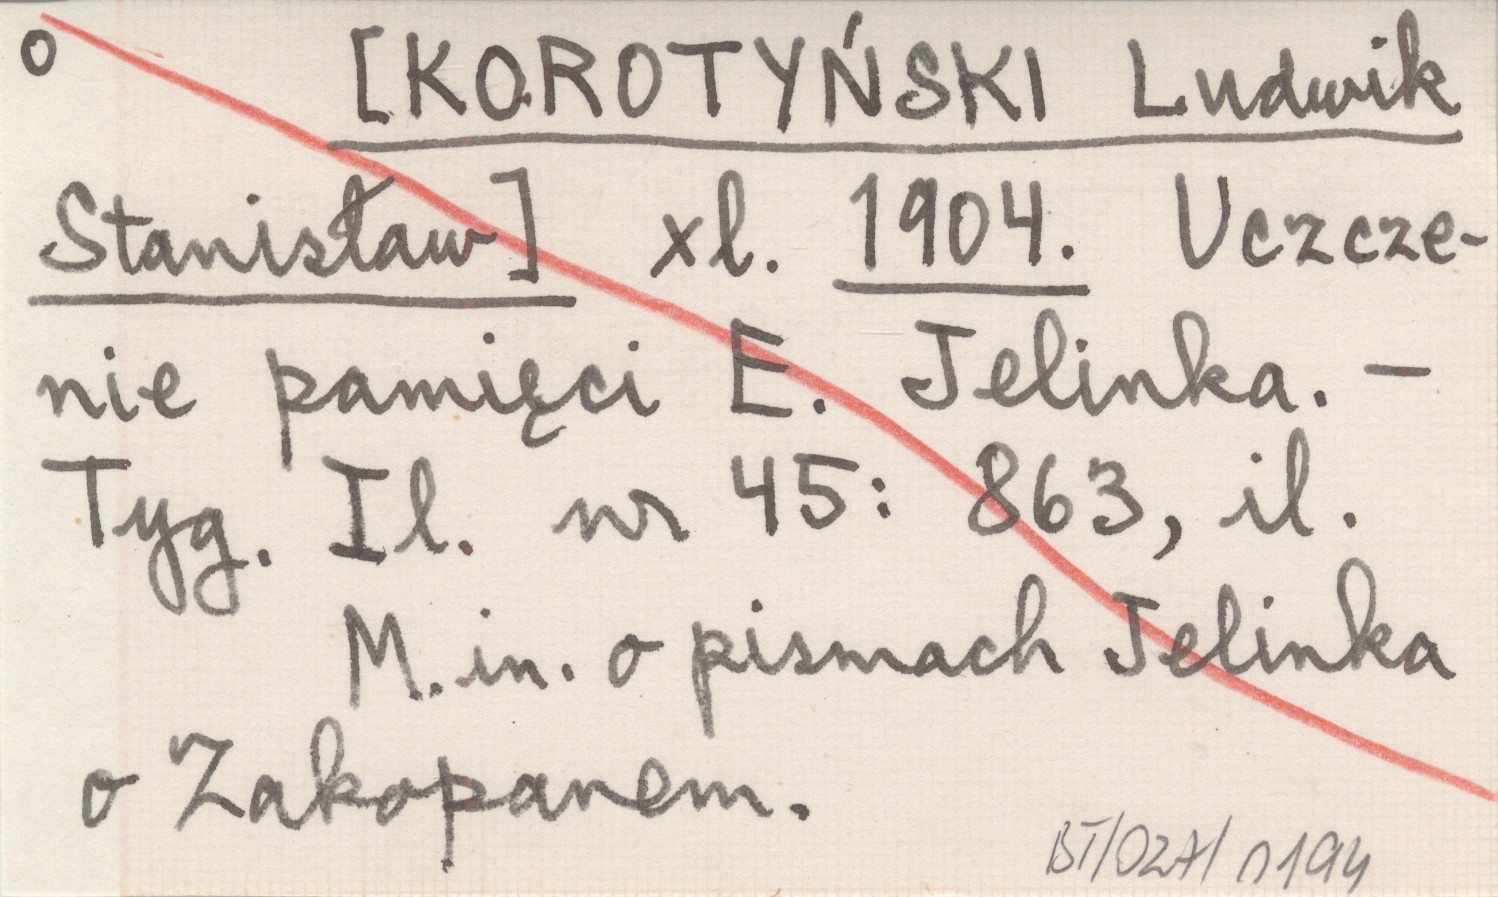 o [KOROTYŃSKI Ludwik
Stanisław] xl. 1904. Uczcze-
nie pamięci E. Jelinka. —
Tyg. Il. nr 45: 863, il.
M.in. o pismach Jelinka
o Zakopanem.
BT/OZA/